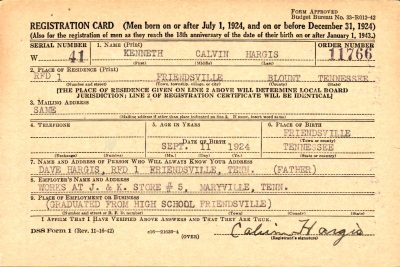 FORM APPROVED
Budget Bureau No. 33-R013-42
REGISTRATION CARD (Men born on or after July 1, 1924, and on or before December 31, 1924)
(Also for the registration of men as they reach the 18th anniversary of the date of their birth on or after January 1, 1943.)
SERIAL NUMBER 1. NAME (Print) ORDER NUMBER
W 41 KENNETH CALVIN HARGIS 11766
(First) (Middle) (Last)
2. PLACE OF RESIDENCE (Print)
RFD 1 FRIENDSVILLE BLOUNT TENNESSEE
(Number and street) (Town, township, village, or city) (County) (State)
[THE PLACE OF RESIDENCE GIVEN ON LINE 2 ABOVE WILL DETERMINE LOCAL BOARD
JURISDICTION; LINE 2 OF REGISTRATION CERTIFICATE WILL BE IDENTICAL]
3. MAILING ADDRESS
SAME
[Mailing address if other than place indicated on line 2. If same, insert word same]
4. TELEPHONE 5. AGE IN YEARS 6. PLACE OF BIRTH
FRIENDSVILLE
DATE OF BIRTH (Town or county)
SEPT. 11 1924 TENNESSEE
(Exchange) (Number) (Mo.) (Day) (Yr.) (State or country)
7. NAME AND ADDRESS OF PERSON WHO WILL ALWAYS KNOW YOUR ADDRESS
DAVE HARGIS, RFD 1 FRIENDSVILLE, TENN. (FATHER)
8. EMPLOYER'S NAME AND ADDRESS
WORKS AT J. & K. STORE # 5, MARYVILLE, TENN.
9. PLACE OF EMPLOYMENT OR BUSINESS
(GRADUATED FROM HIGH SCHOOL FRIENDSVILLE)
(Number and street or R. F. D. number) (Town) (County) (State)
I AFFIRM THAT I HAVE VERIFIED ABOVE ANSWERS AND THAT THEY ARE TRUE.
DSS Form 1 (Rev. 11-16-42) (OVER) Calvin Hargis
(Registrant's signature)